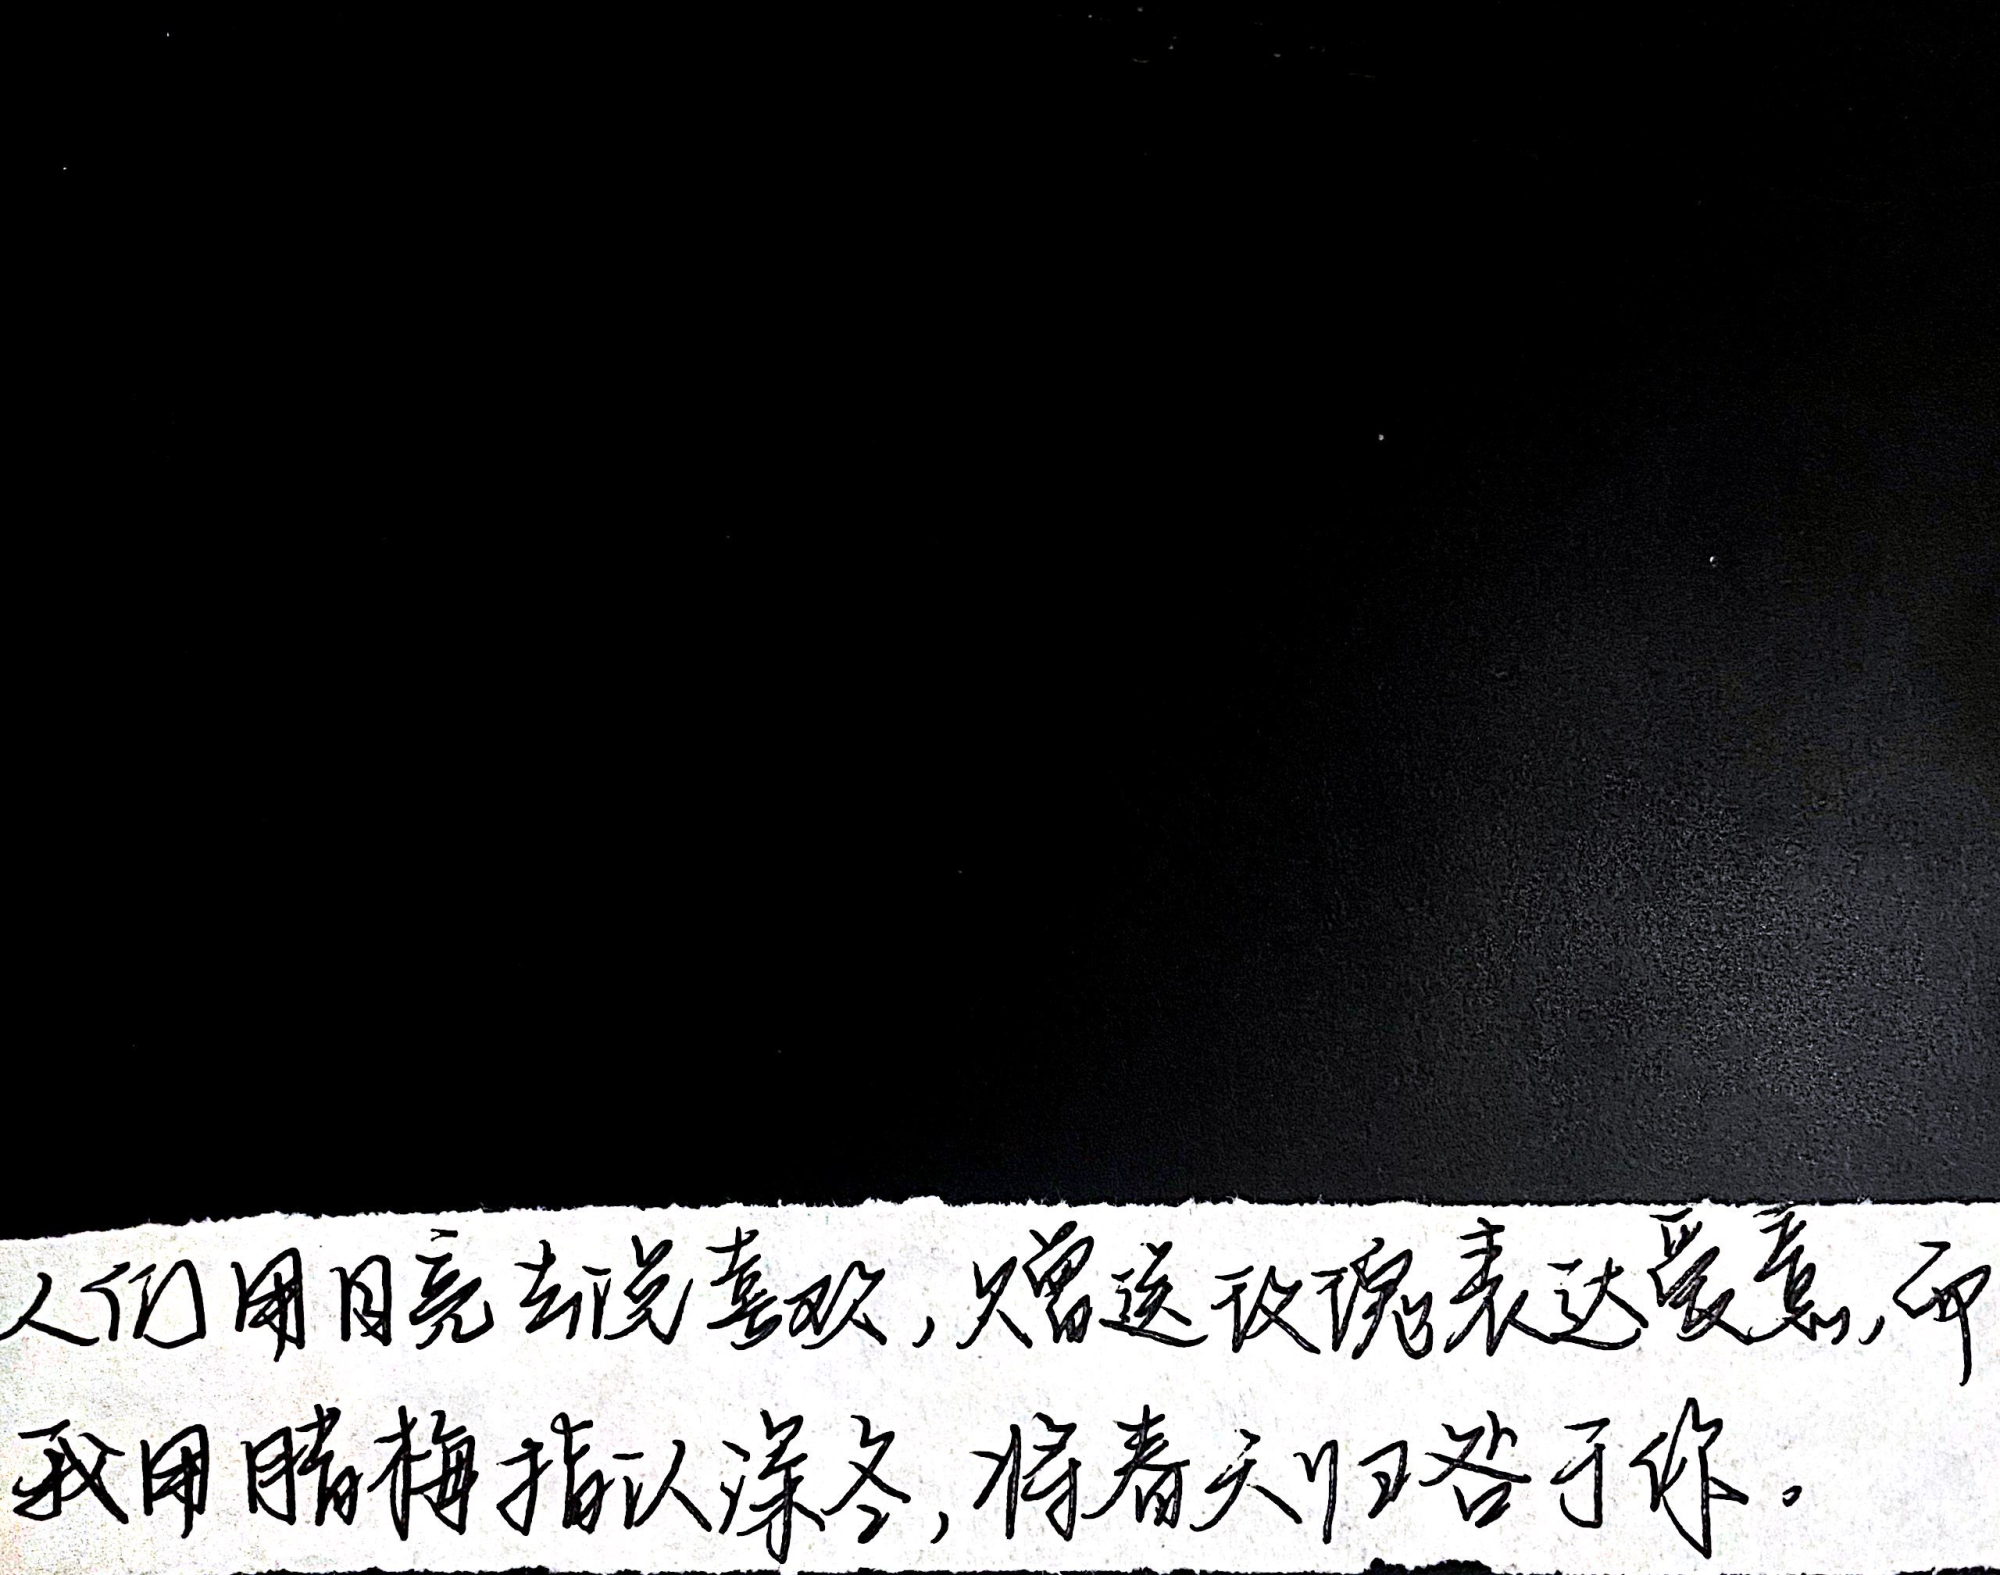 人们用月亮去说喜欢,赠送玫瑰表达爱意,而
我用腊梅指认深冬,将春天归咎于你。